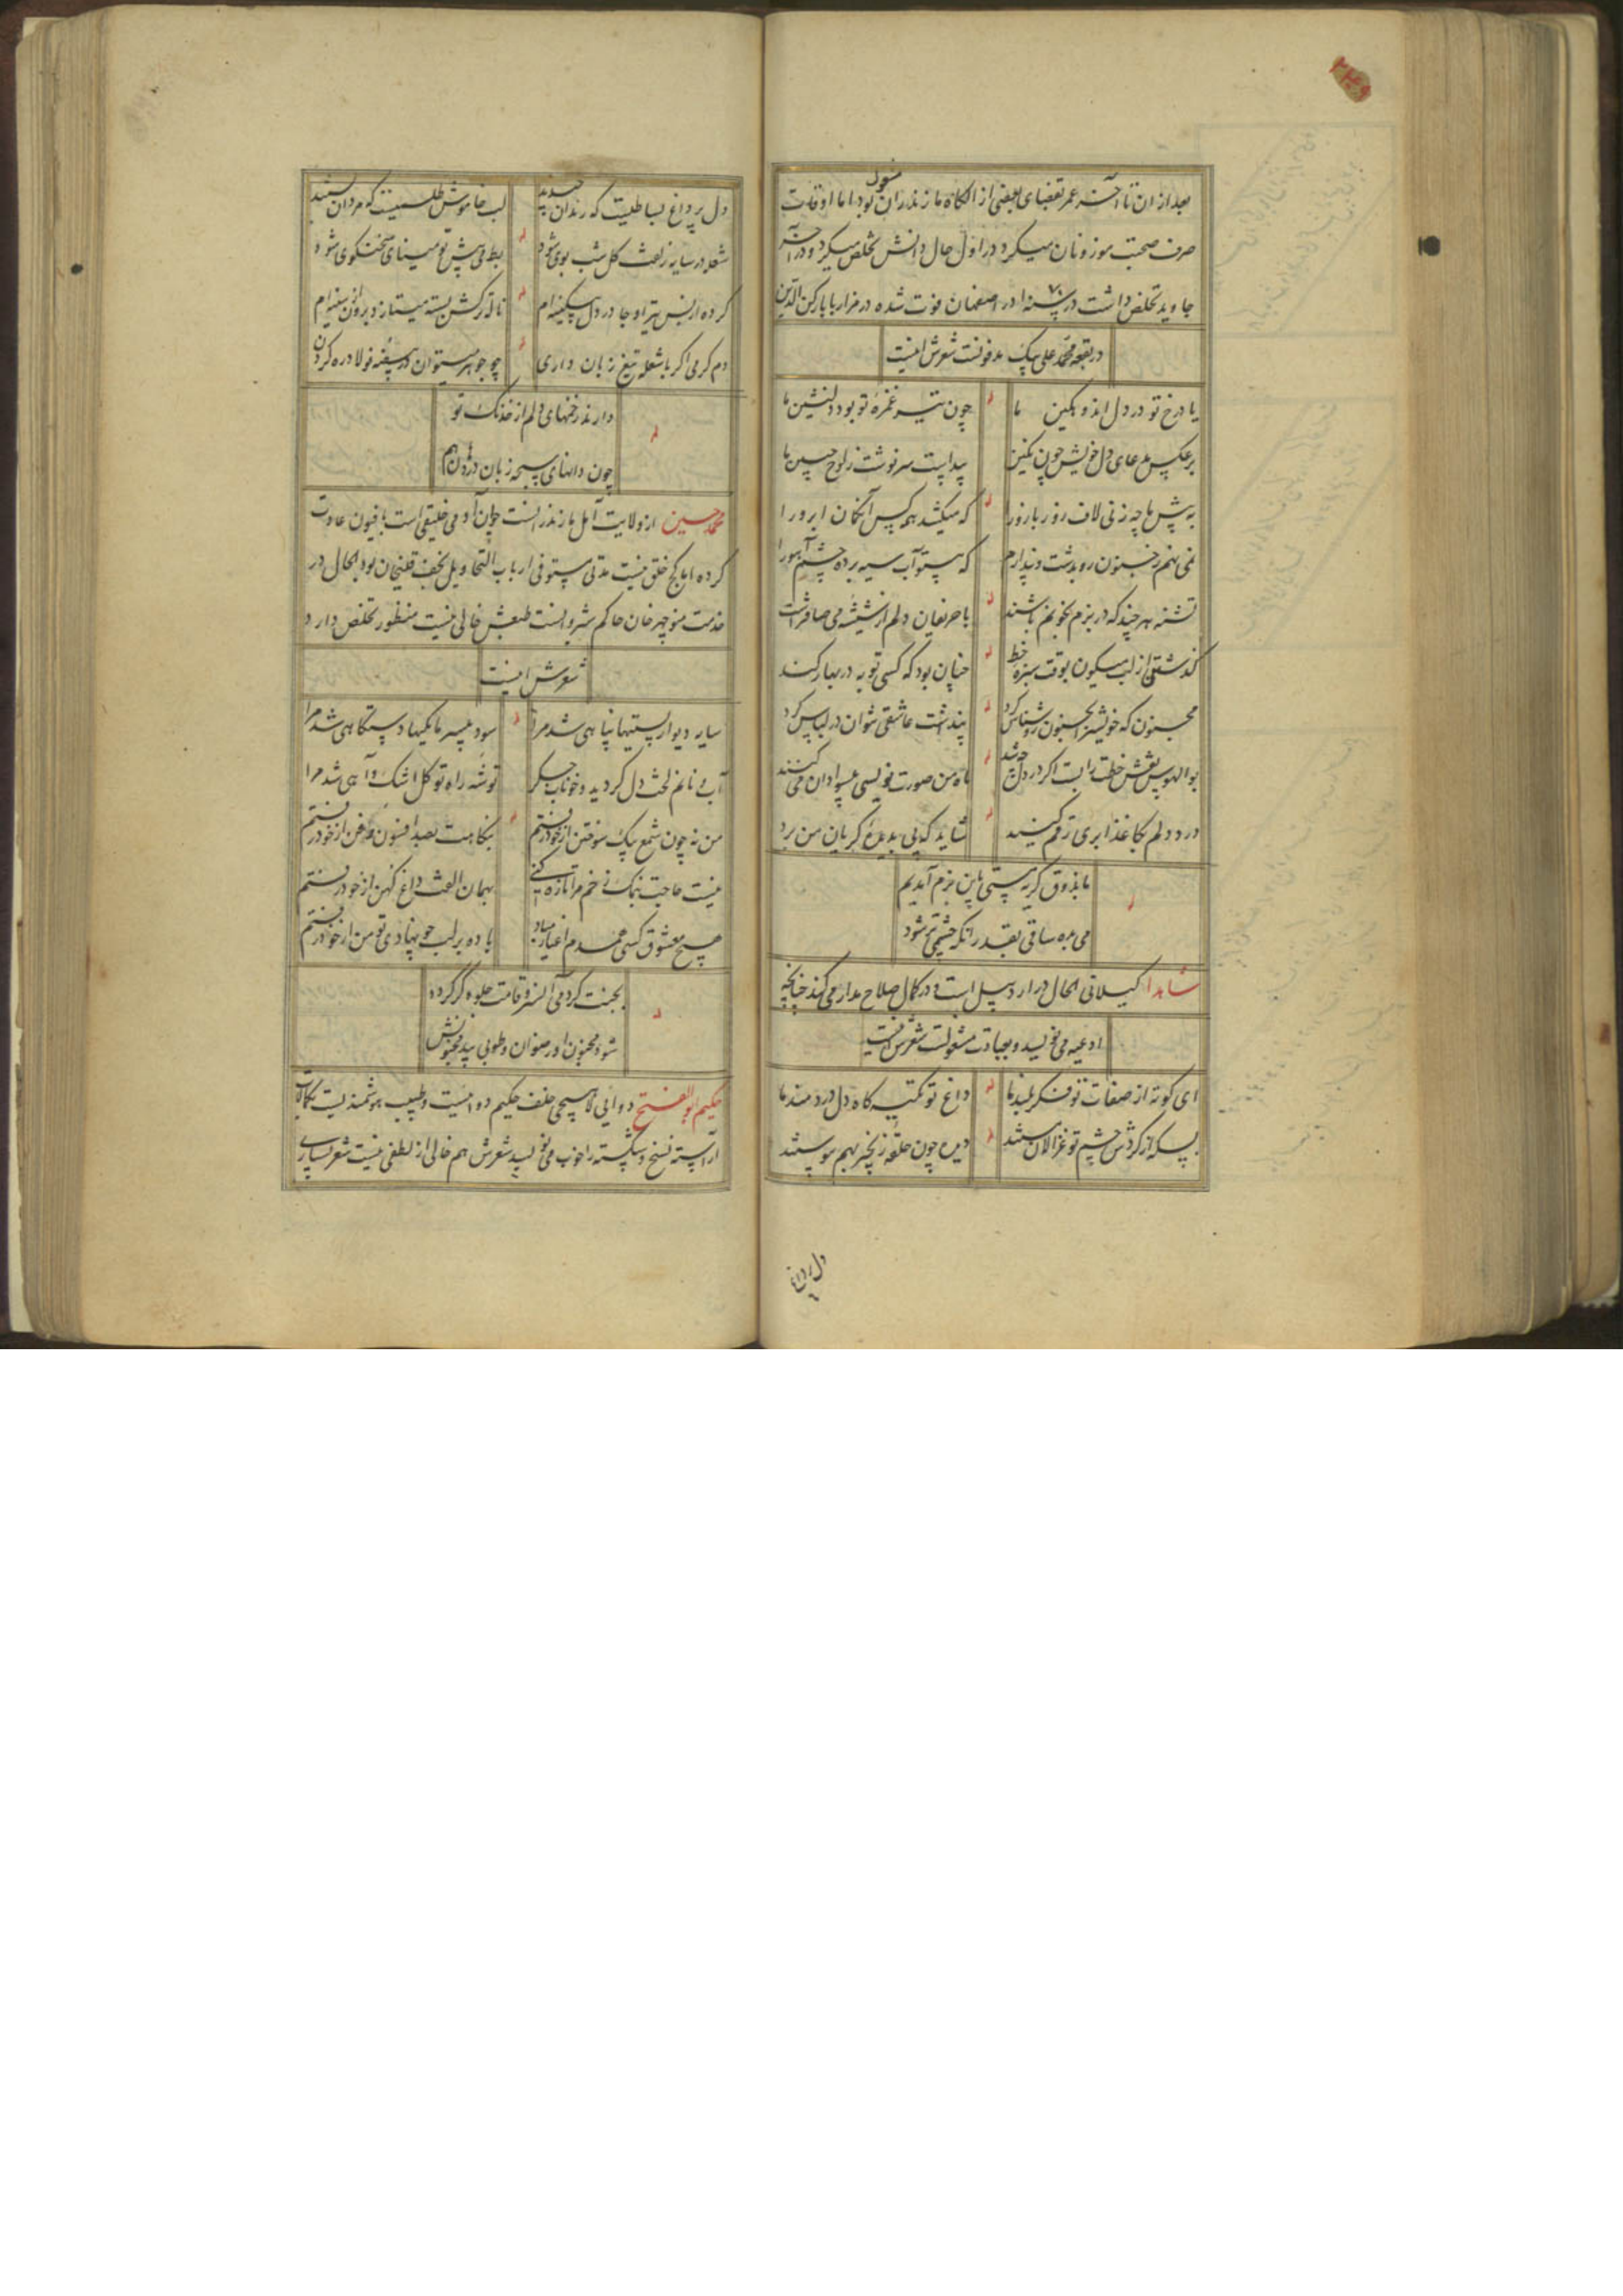 بعد از ان تا آخر عمر بقضای بعضی از الکاء مازندران مشغول بود اما اوقات
صرف صحبت موزونان میکرد در اول حال دانش تخلص میکرد و در آخر
جاوید تخلص داشت در سنه در اصفهان فوت شده در مزار بابا رکن الدین
در بقعه محمد علی بیک مدفونست شعرش اینست
یاد رخ تو در دل اندوهکین ما
چون تیر غمزه تو بود دلنشین ما
برعکس مدعای دل خویش چون نکین
پیداست سرنوشت ز لوح جبین ما
به پیش ما چه زنی لاف زور بازو را
که میکشد همه کس آن کمان ابرو را
نمی نهم ز جنون رو بدشت و پندارم
که پیتو آب سیه برده چشم آهو را
تشنه هر چند که در بزم بخونم باشند
با حریفان دلم از شیشه می صافتر است
کذشتن از لب میکون بوقت سبزه خط
چنان بود که کسی توبه در بهار کند
مجنون که خویش را بجنون روشناس کرد
پنداشت عاشقی نتوان در لباس کرد
بوالهوس نقش خطت را بست اکر در دل چه شد
ماه من صورت نویسی بیسوادان می کنند
درد دلم بکاغذ ابری رقم کنید
شاید که پی بدیده کریان من برد
ما بذوق کریه مستی باین بزم آمدیم
می بده ساقی بقدر آنکه چشمی تر شود
شاهدا کیلانی الحال در اردبیل است و در کمال صلاح مدار می کند چنانچه
ادعیه می نویسد و بعبادت مشغولست شعرش اینست
ای کوته از صفات تو فکر بلند ما
داغ تو تکیه کاه دل دردمند ما
بسکه از کردش چشم تو غزالان مستند
دیده چون حلقه زنجیر بهم پیوستند
دل پر داغ
دل پر داغ بساطیست که رندان چیدند
لب خاموش طلسمیست که مردان بستند
شعله در سایه زلفت کل شب بوی شود
بط می پیش تو مینای سخنکوی شود
کرده از بس تیر او جا در دل بیکینه ام
ناله ترکش بسته میتازد برون از سینه ام
دم کرمی اکر با شعله تیغ زبان داری
چو جوهر میتوان در بیضه فولاد ره کردن
دارند زخمهای دلم از خدنک تو
چون دانهای سبحه زبان در دهان هم
محمد حسین از ولایت آمل مازندرانست جوان آدمی خلیقی است بافیون عادت
کرده اما کج خلق نیست مدتی مستوفی ارباب التحاویل نجف قلیخان بود الحال در
خدمت منوچهر خان حاکم شیروانست طبعش خالی نیست منظور تخلص دارد
شعرش اینست
سایه دیوار پستیها پناهی شد مرا
سود بیسرمایکیها دستکاهی شد مرا
آب و نانم لخت دل کردید و خوناب جکر
توشه راه توکل اشک و آهی شد مرا
من نه چون شمع بیک سوختن از خود رفتم
بنکاهت بصد افسون و فن از خود رفتم
نیست حاجت بنمک زخم مرا تازه کنی
بهمان الفت داغ کهن از خود رفتم
هیچ معشوق کسی همدم اغیار مباد
باده بر لب چو نهادی تو من از خود رفتم
بجنت کر دمی آن سرو قامت جلوه کر کردد
شود مجنون او رضوان و طوبی بید مجنونش
حکیم ابوالفتح دوایی لاهیجی خلف حکیم دواییست و طبیب هوشمندیست بکمالات
آراسته نسخ و شکسته را خوب می نویسد شعرش هم خالی از لطفی نیست شعر بسیاری